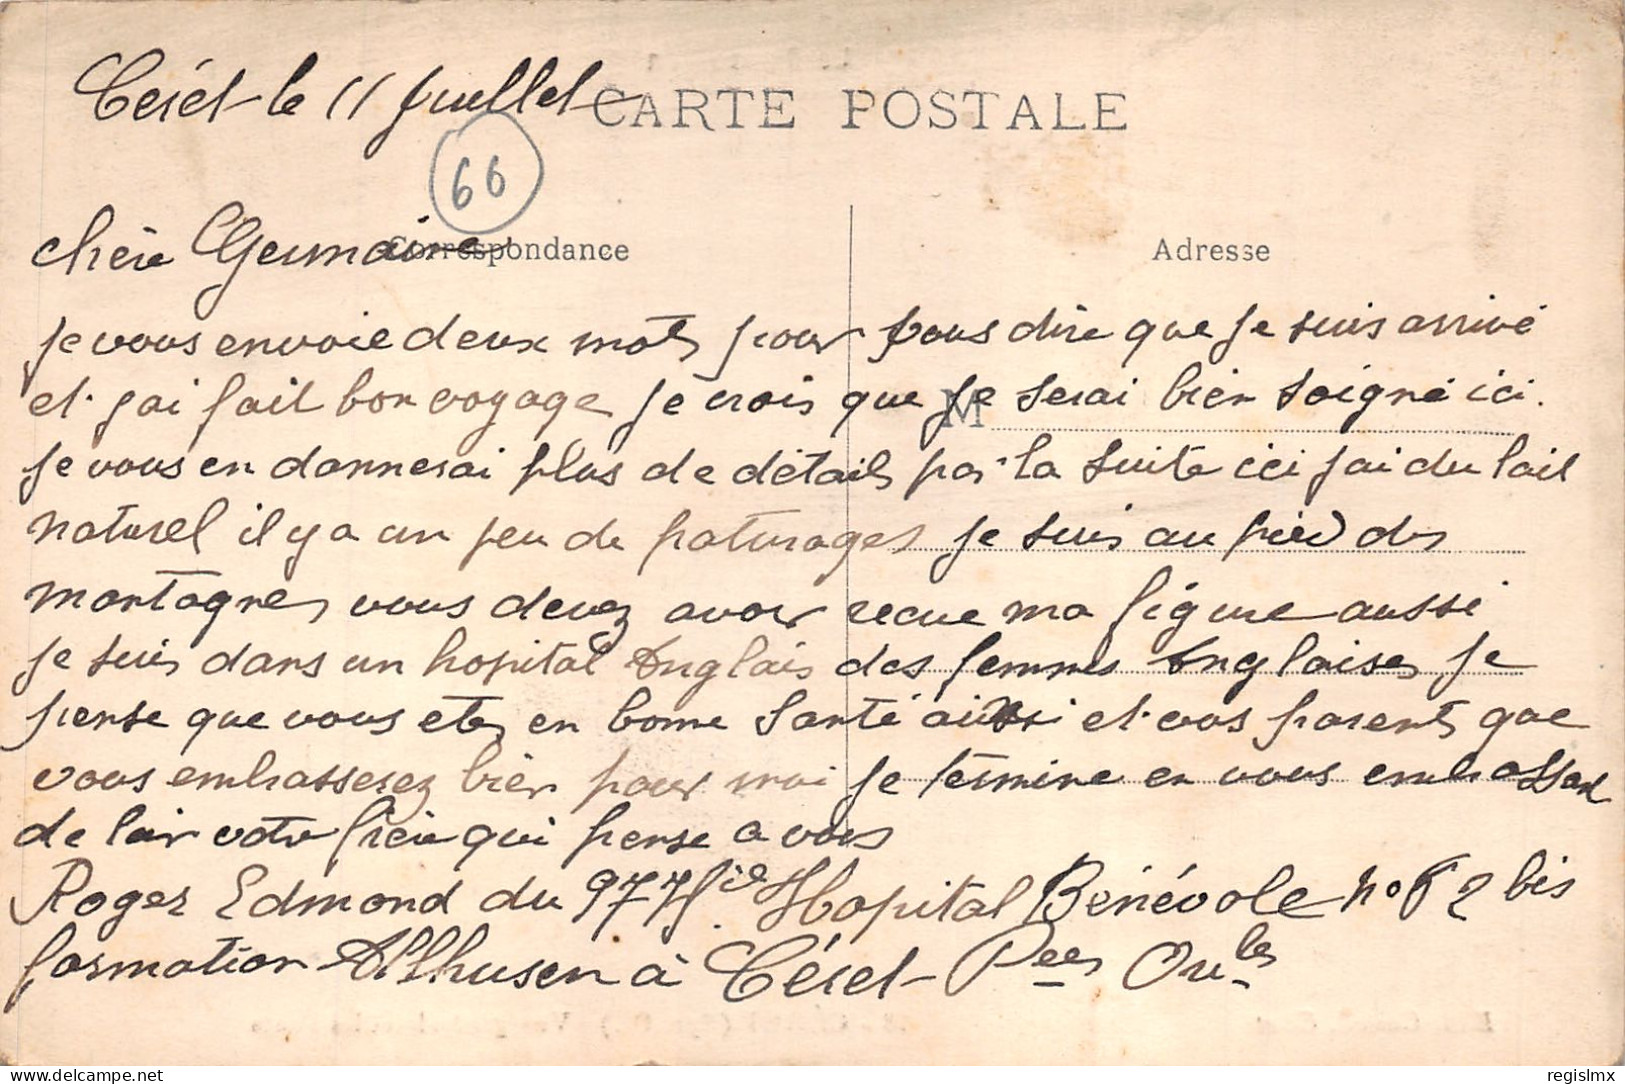 Céret le 11 Juillet CARTE POSTALE
66
chère Germaine Correspondance Adresse
je vous envoie deux mots pour vous dire que je suis arrivé
et j'ai fait bon voyage je crois que je serai bien soigné ici.
M
je vous en donnerai plus de détails par la suite ici j'ai du lait
naturel il y a un peu de paturages je suis au pied des
montagnes vous devez avoir recue ma figure aussi
je suis dans un hopital Anglais des femmes Anglaises je
pense que vous etes en bonne santé aussi et vos parents que
vous embrasserez bien pour moi je termine en vous embrassant
de loin votre frère qui pense a vous
Roger Edmond du 97 Hopital Bénévole no 62 bis
formation Allhusen à Céret Pees Orles
delcampe.net
regislmx